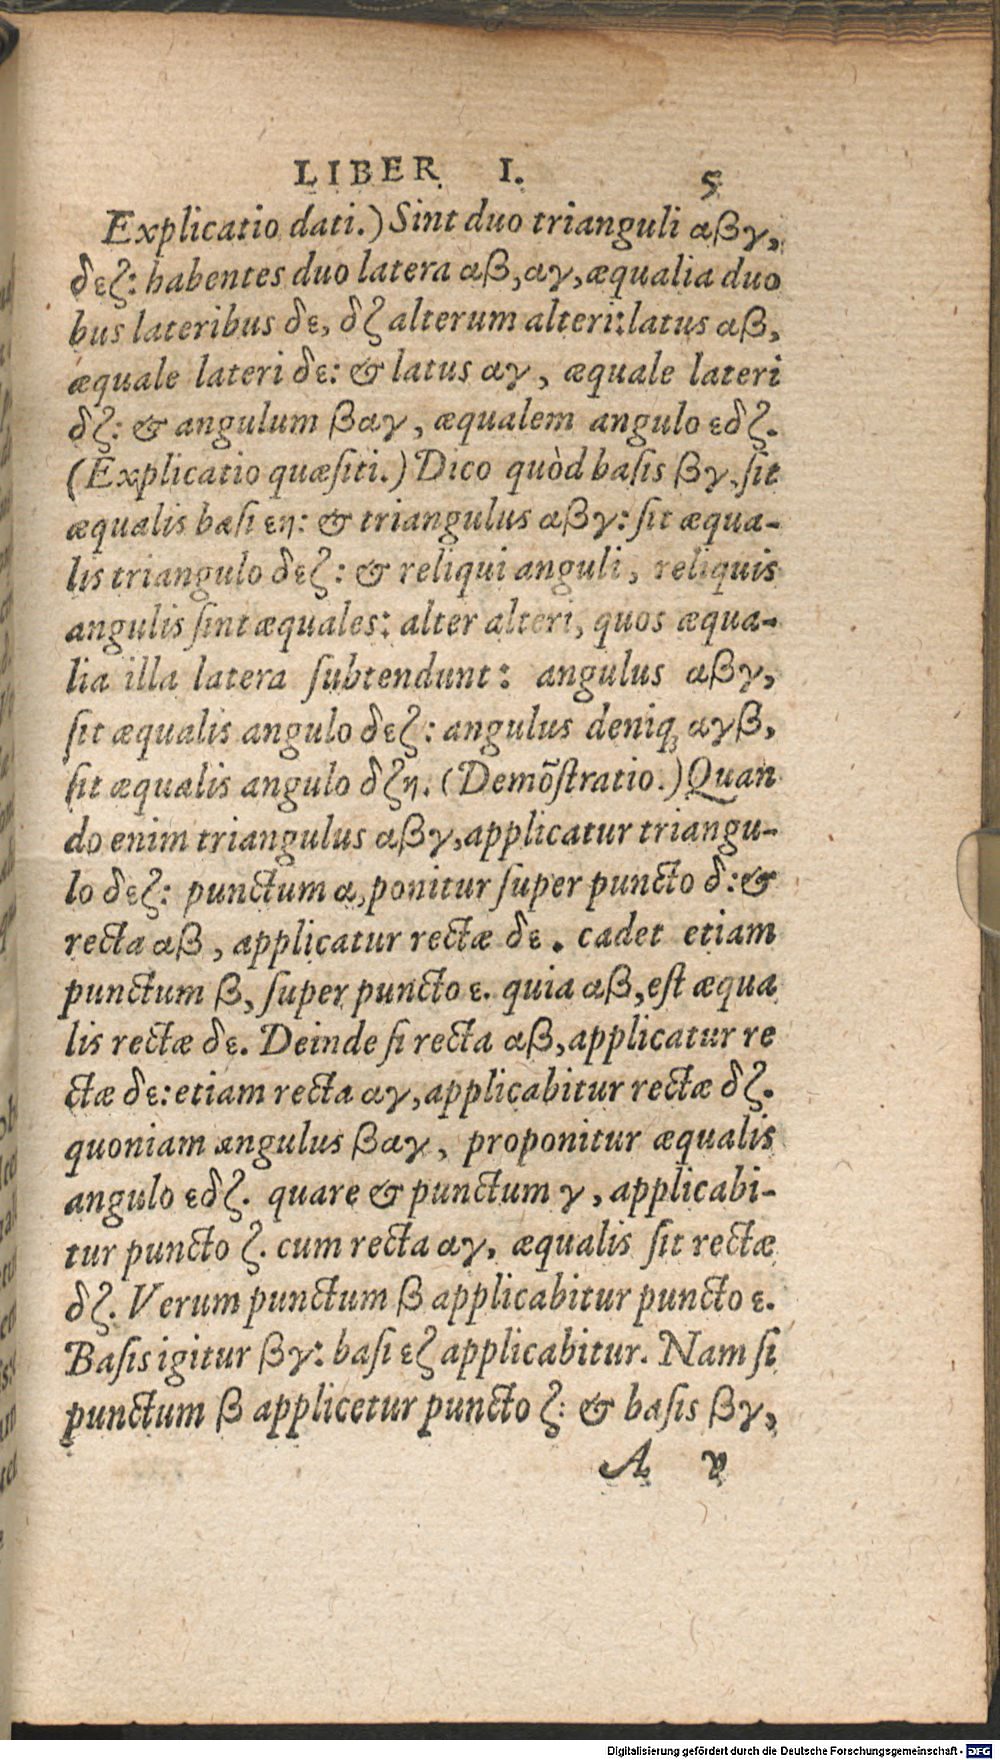 LIBER I. 5
Explicatio dati.) Sint duo trianguli αβγ,
δεζ: habentes duo latera αβ, αγ, æqualia duo
bus lateribus δε, δζ alterum alteri: latus αβ,
æquale lateri δε: & latus αγ, æquale lateri
δζ: & angulum βαγ, æqualem angulo εδζ.
(Explicatio quæſiti.) Dico quòd baſis βγ, ſit
æqualis baſi εη: & triangulus αβγ: ſit æqua-
lis triangulo δεζ: & reliqui anguli, reliquis
angulis ſint æquales: alter alteri, quos æqua-
lia illa latera ſubtendunt: angulus αβγ,
ſit æqualis angulo δεζ: angulus deniq; αγβ,
ſit æqualis angulo δζη. (Demõſtratio.) Quan
do enim triangulus αβγ, applicatur triangu-
lo δεζ: punctum α, ponitur ſuper puncto δ: &
recta αβ, applicatur rectæ δε. cadet etiam
punctum β, ſuper puncto ε. quia αβ, eſt æqua
lis rectæ δε. Deinde ſi recta αβ, applicatur re
ctæ δε: etiam recta αγ, applicabitur rectæ δζ.
quoniam angulus βαγ, proponitur æqualis
angulo εδζ. quare & punctum γ, applicabi-
tur puncto ζ. cum recta αγ, æqualis ſit rectæ
δζ. Verum punctum β applicabitur puncto ε.
Baſis igitur βγ: baſi εζ applicabitur. Nam ſi
punctum β applicetur puncto ζ: & baſis βγ,
A v
Digitalisierung gefördert durch die Deutsche Forschungsgemeinschaft - DFG